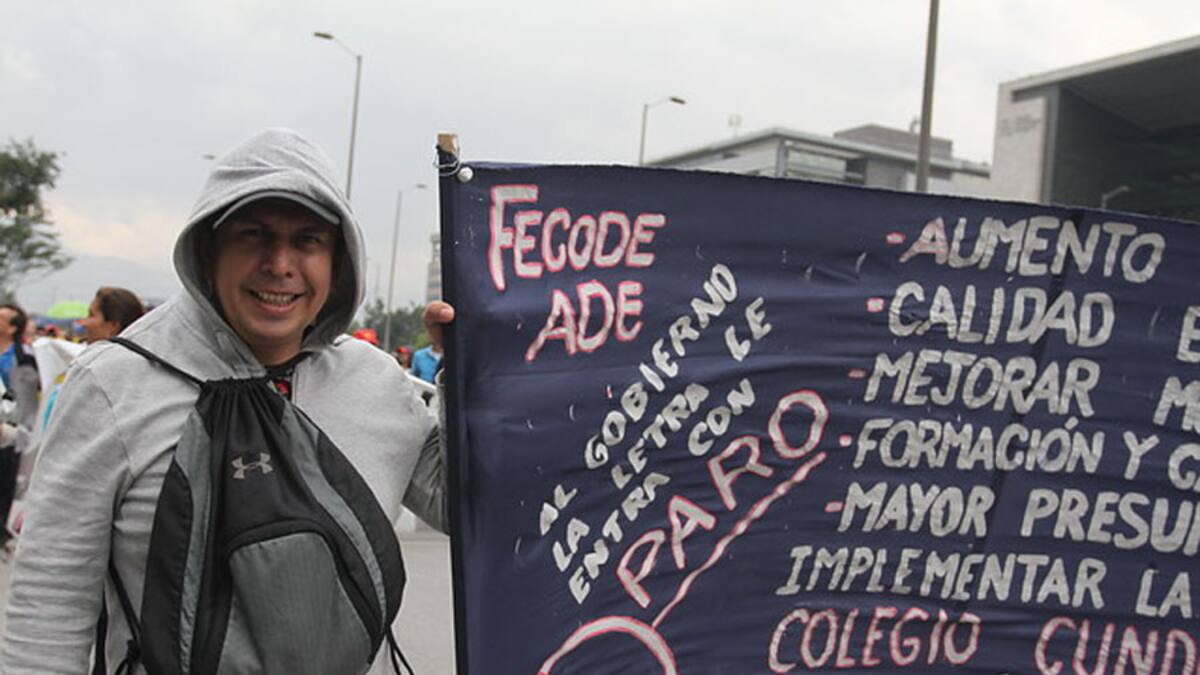 FECODE
ADE
AL GOBIERNO
LA LETRA LE
ENTRA CON
PARO
- AUMENTO
- CALIDAD E
- MEJORAR M
- FORMACIÓN Y
- MAYOR PRESU
IMPLEMENTAR LA
COLEGIO CUND